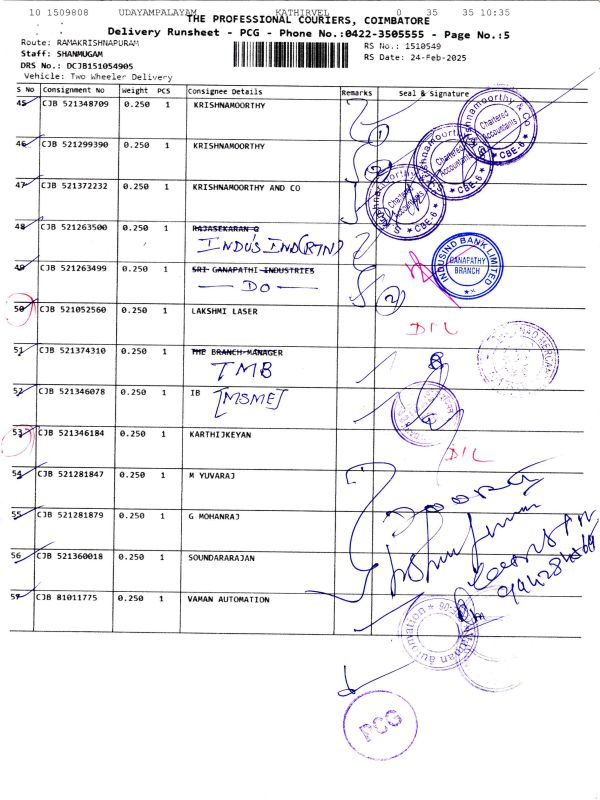 10 1509808 UDAYAMPALAYAM KATHIRVEL 0 35 35 10:35
THE PROFESSIONAL COURIERS, COIMBATORE
Delivery Runsheet - PCG - Phone No.:0422-3505555 - Page No.:5
Route: RAMAKRISHNAPURAM
RS No.: 1510549
Staff: SHANMUGAM
RS Date: 24-Feb-2025
DRS No.: DCJB151054905
Vehicle: Two Wheeler Delivery
S No Consignment No Weight PCS Consignee Details Remarks Seal & Signature
45 CJB 521348709 0.250 1 KRISHNAMOORTHY
1
46 CJB 521299390 0.250 1 KRISHNAMOORTHY
47 CJB 521372232 0.250 1 KRISHNAMOORTHY AND CO
Krishnamoorthy & Co
Chartered Accountants
CBE-6
Chartered Accountants
CBE-6
Chartered Accountants
CBE-6
48 CJB 521263500 0.250 1 RAJASEKARAN G
INDUS IND(RTN)
49 CJB 521263499 0.250 1 SRI GANAPATHI INDUSTRIES
DO
2
INDUSIND BANK LIMITED
GANAPATHY BRANCH
50 CJB 521052560 0.250 1 LAKSHMI LASER
D/L
51 CJB 521374310 0.250 1 THE BRANCH MANAGER
TMB
52 CJB 521346078 0.250 1 IB [MSME]
53 CJB 521346184 0.250 1 KARTHIJKEYAN
D/L
54 CJB 521281847 0.250 1 M YUVARAJ
55 CJB 521281879 0.250 1 G MOHANRAJ
56 CJB 521360018 0.250 1 SOUNDARARAJAN
57 CJB 81011775 0.250 1 VAMAN AUTOMATION
PCG